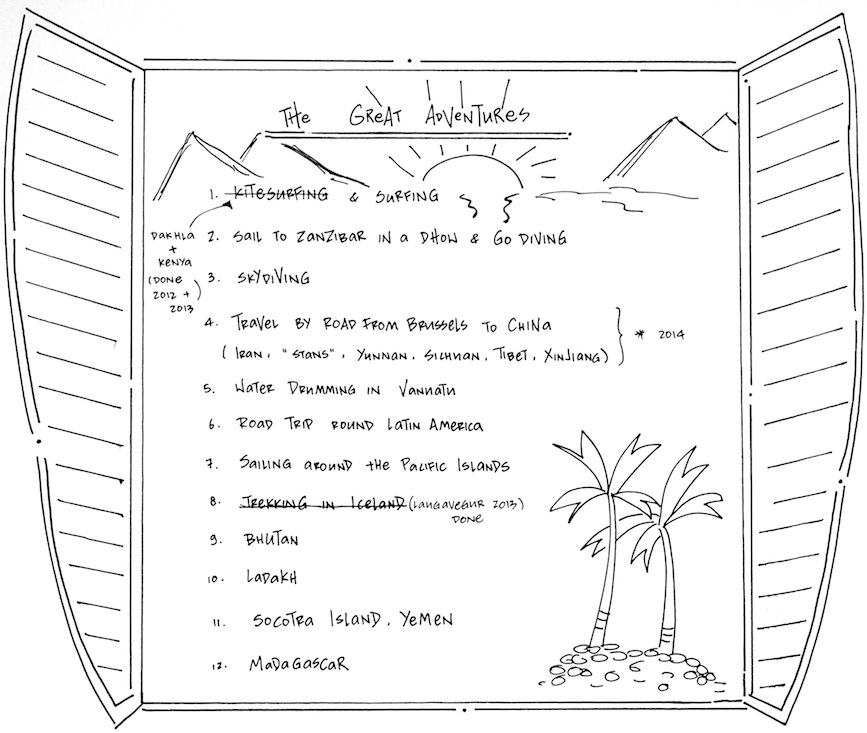 THE GREAT ADVENTURES
1. KITESURFING & SURFING
DAKHLA
+
KENYA
(DONE
2012 +
2013)
2. SAIL TO ZANZIBAR IN A DHOW & GO DIVING
3. SKYDIVING
4. TRAVEL BY ROAD FROM BRUSSELS TO CHINA
(IRAN, "STANS", YUNNAN, SICHUAN, TIBET, XINJIANG) * 2014
5. WATER DRUMMING IN VANUATU
6. ROAD TRIP ROUND LATIN AMERICA
7. SAILING AROUND THE PACIFIC ISLANDS
8. TREKKING IN ICELAND (LAUGAVEGUR 2013)
DONE
9. BHUTAN
10. LADAKH
11. SOCOTRA ISLAND, YEMEN
12. MADAGASCAR